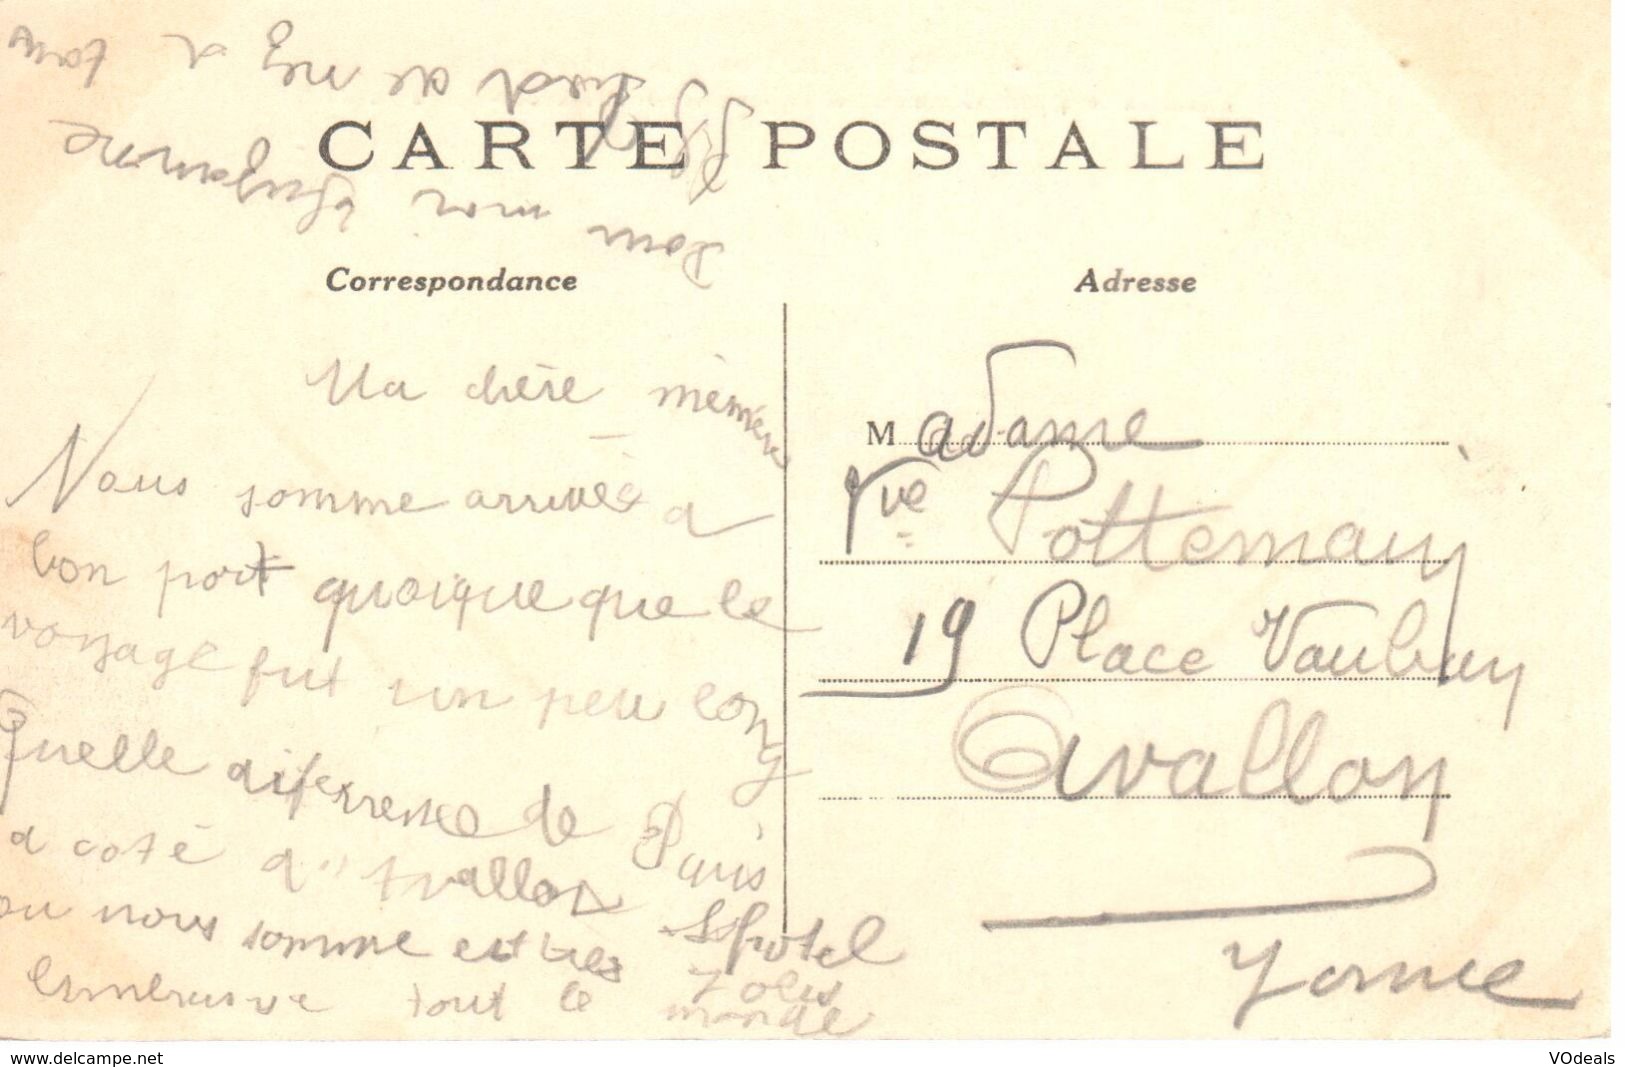 CARTE POSTALE
Correspondance
Adresse
Ma chère mémère
Nous somme arrivés a
bon port quoique que le
voyage fut un peu long
Quelle diferresse de Paris
a coté d'Avallon L hotel
ou nous somme est tres Jolis
Embrasse tout le monde
pour moi
pied de nez a tous
Madame
Vve Pottemain
19 Place Vauban
Avallon
Yonne
www.delcampe.net
VOdeals